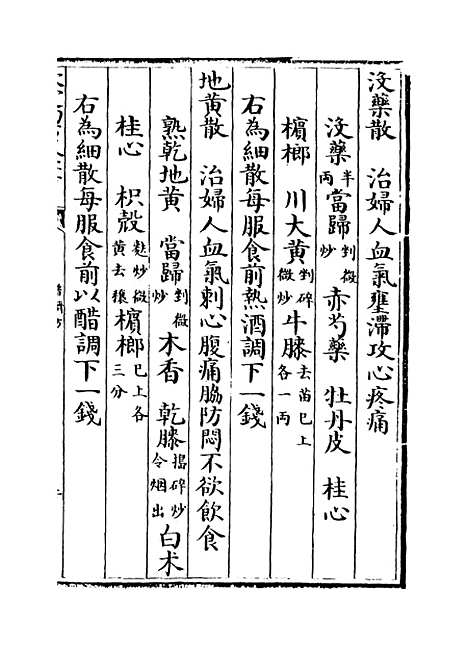 沒藥散　治婦人血氣壅滯攻心疼痛
沒藥半兩當歸剉微炒赤芍藥　牡丹皮　桂心
檳榔　川大黃剉碎微炒牛膝去苗已上各一兩
右為細散每服食前熱酒調下一錢
地黃散　治婦人血氣刺心腹痛脇防悶不欲飲食
熟乾地黃　當歸剉微炒木香　乾膝搗碎炒令烟出白术
桂心　枳殼麩炒微黃去穰檳榔已上各三分
右為細散每服食前以醋調下一錢